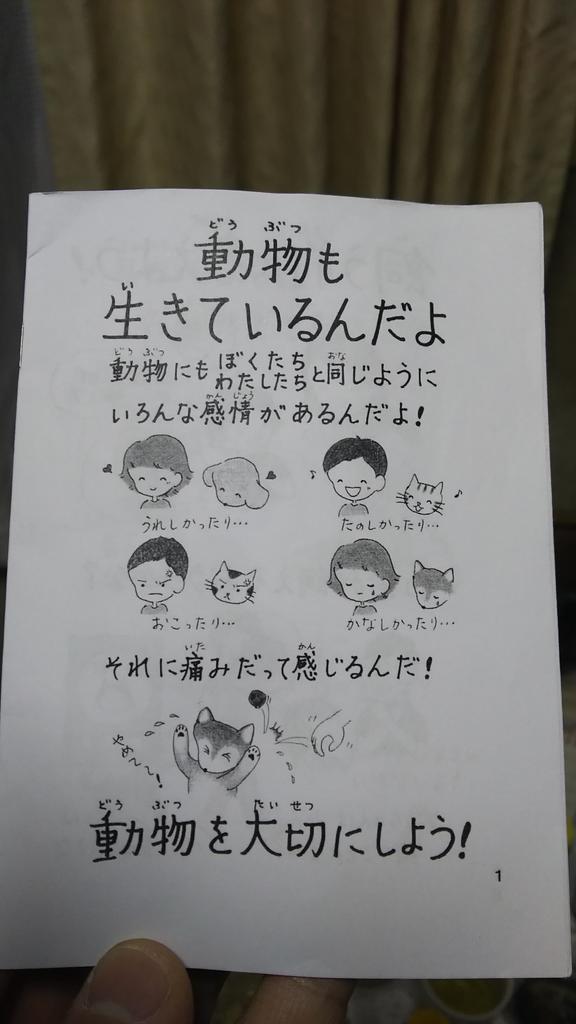 動物も
生きているんだよ
動物にもぼくたちわたしたちと同じように
いろんな感情があるんだよ!
うれしかったり…
たのしかったり…
おこったり…
かなしかったり…
それに痛みだって感じるんだ!
やめて〜!
動物を大切にしよう!
1